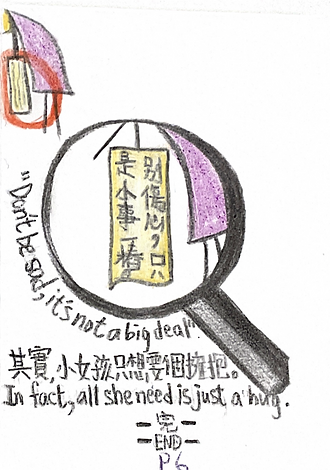 別傷心,只
是小事一樁
"Don't be sad, it's not a big deal".
其實,小女孩只想要個擁抱。
In fact, all she need is just a hug.
=完=
=END=
P6